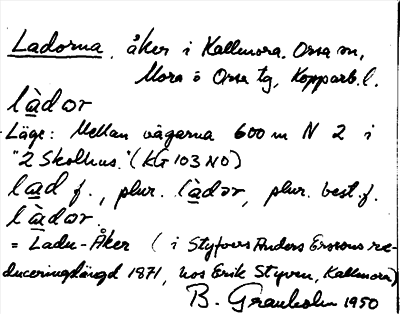 Ladorna, åker i Kallmora, Orsa sn,
Mora o Orsa tg, Kopparb. l.
làdor
Läge: Mellan vägarna 600 m N 2 i
"2 Skolhus." (KG 103 NO)
lad f., plur. làdər, plur. best. f.
làdor.
= Ladu-Åker (i Styfvers Anders Erssons re-
duceringslängd 1871, hos Erik Styven, Kallmora)
B. Granholm 1950